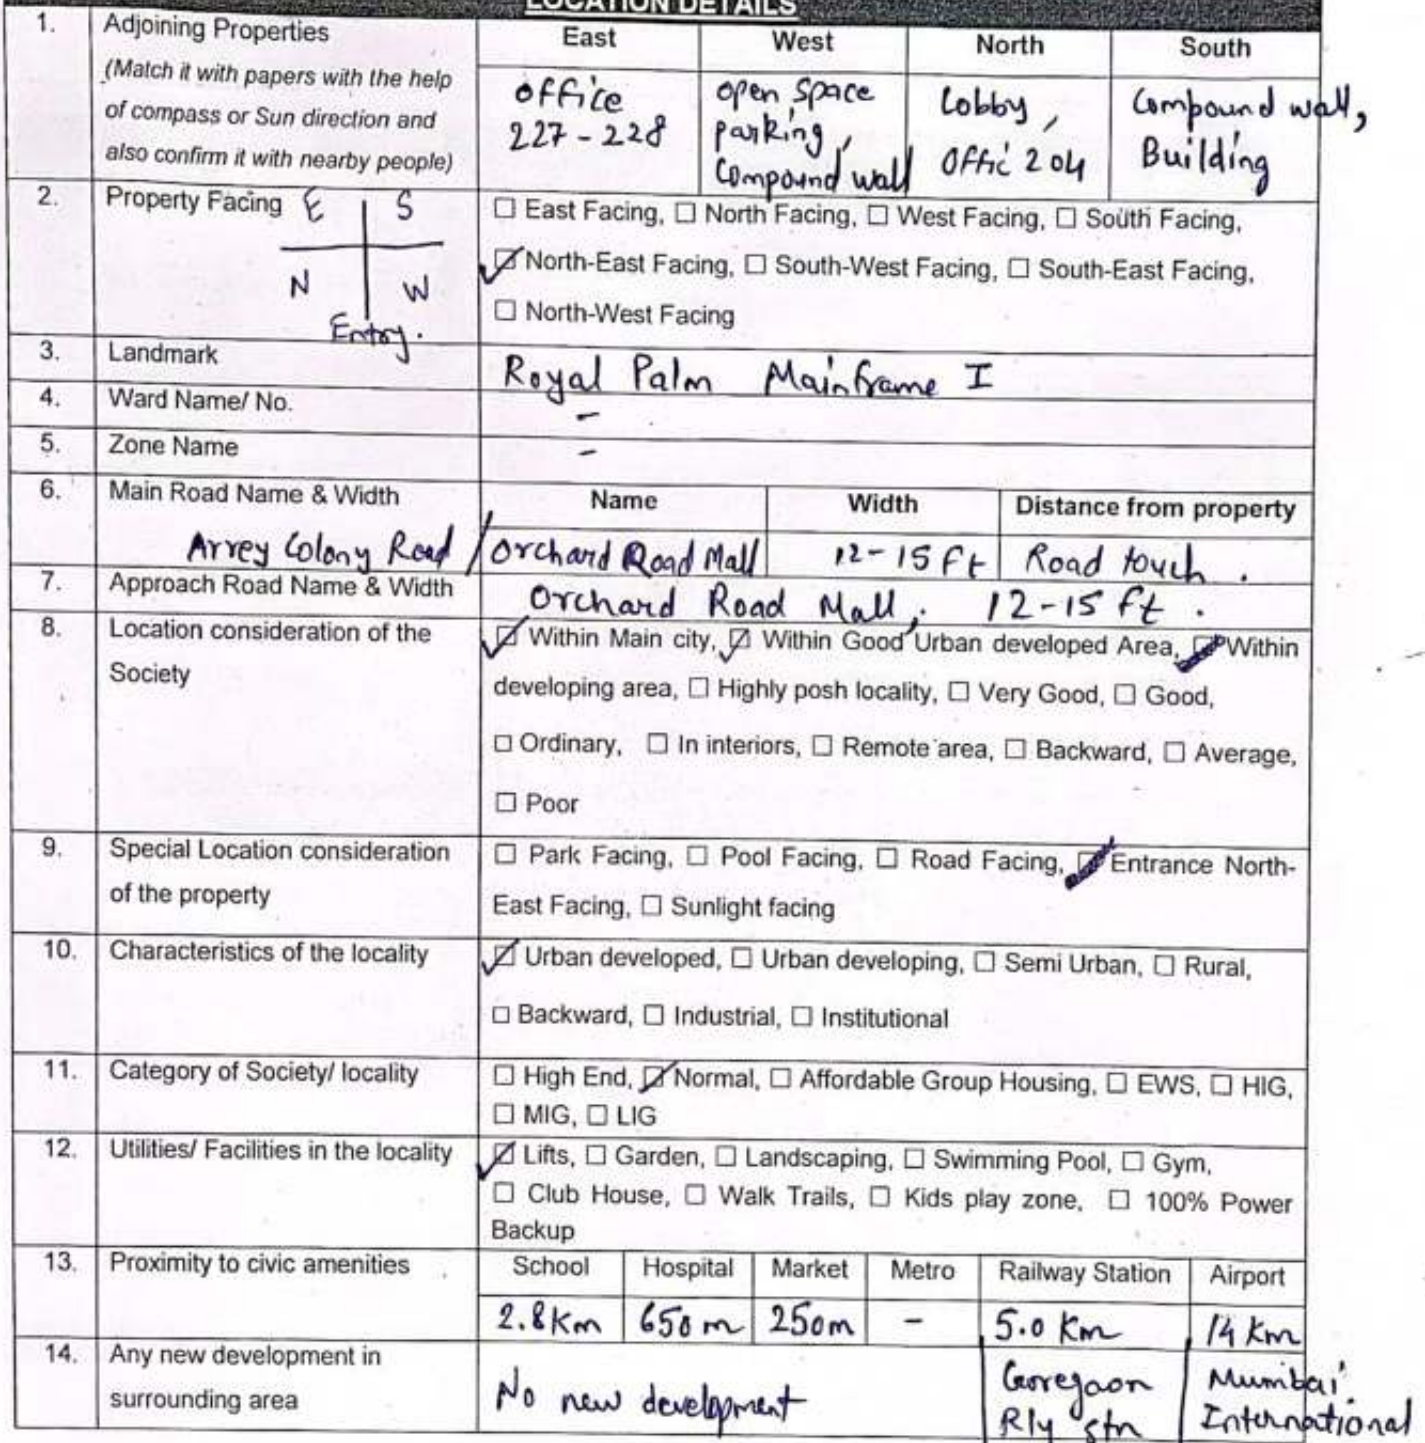 LOCATION DETAILS
1. Adjoining Properties
(Match it with papers with the help
of compass or Sun direction and
also confirm it with nearby people)
East West North South
office
227-228
open space
parking,
Compound wall
Lobby,
Offic 204
Compound wall,
Building
2. Property Facing
E S
N W
Entry.
☐ East Facing, ☐ North Facing, ☐ West Facing, ☐ South Facing,
☑ North-East Facing, ☐ South-West Facing, ☐ South-East Facing,
☐ North-West Facing
3. Landmark Royal Palm Mainframe I
4. Ward Name/ No. -
5. Zone Name -
6. Main Road Name & Width
Name Width Distance from property
Arrey Colony Road / Orchard Road Mall 12-15 Ft Road touch.
7. Approach Road Name & Width Orchard Road Mall, 12-15 ft.
8. Location consideration of the
Society
☑ Within Main city, ☑ Within Good Urban developed Area, ☑ Within
developing area, ☐ Highly posh locality, ☐ Very Good, ☐ Good,
☐ Ordinary, ☐ In interiors, ☐ Remote area, ☐ Backward, ☐ Average,
☐ Poor
9. Special Location consideration
of the property
☐ Park Facing, ☐ Pool Facing, ☐ Road Facing, ☑ Entrance North-
East Facing, ☐ Sunlight facing
10. Characteristics of the locality
☑ Urban developed, ☐ Urban developing, ☐ Semi Urban, ☐ Rural,
☐ Backward, ☐ Industrial, ☐ Institutional
11. Category of Society/ locality
☐ High End, ☑ Normal, ☐ Affordable Group Housing, ☐ EWS, ☐ HIG,
☐ MIG, ☐ LIG
12. Utilities/ Facilities in the locality
☑ Lifts, ☐ Garden, ☐ Landscaping, ☐ Swimming Pool, ☐ Gym,
☐ Club House, ☐ Walk Trails, ☐ Kids play zone, ☐ 100% Power
Backup
13. Proximity to civic amenities
School Hospital Market Metro Railway Station Airport
2.8Km 650m 250m - 5.0 Km 14 Km
14. Any new development in
surrounding area
No new development
Goregaon
Rly stn
Mumbai
International